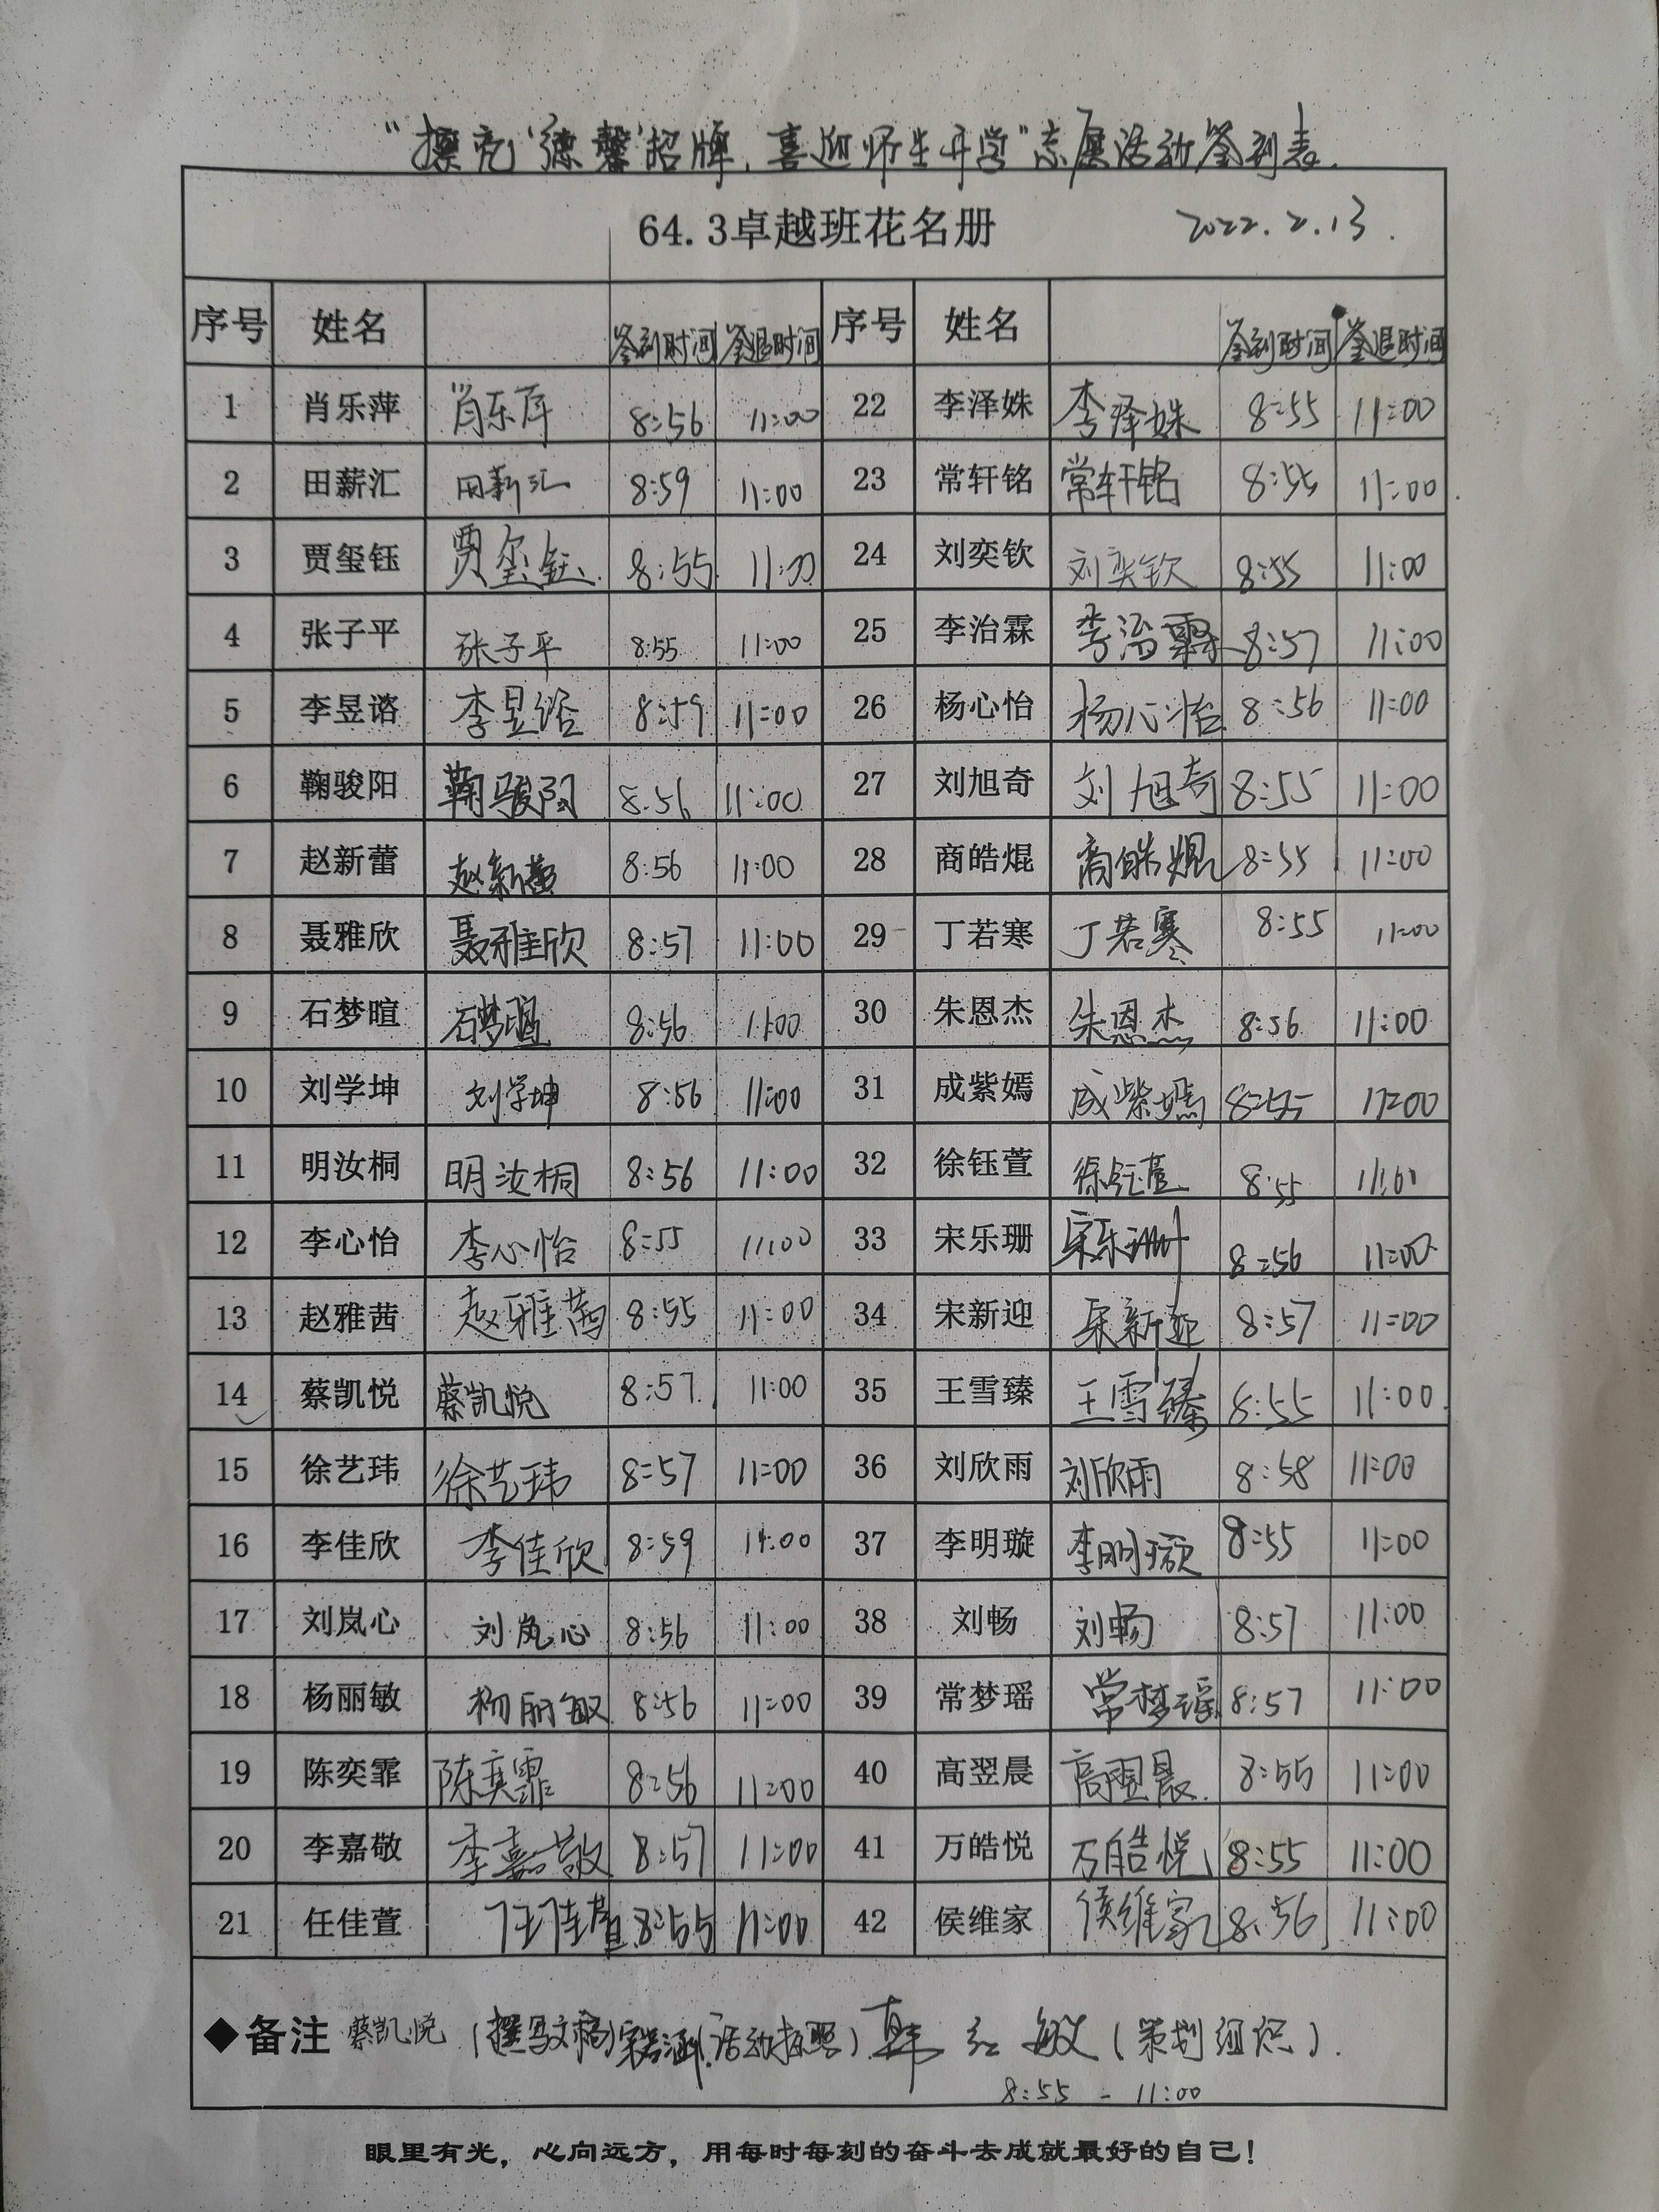 “擦亮‘德馨’招牌，喜迎师生开学”志愿活动签到表.
64.3卓越班花名册 2022.2.13.
序号 姓名 签到时间 签退时间 序号 姓名 签到时间 签退时间
1 肖乐萍 肖乐萍 8:56 11:00 22 李泽姝 李泽姝 8:55 11:00
2 田薪汇 田薪汇 8:59 11:00 23 常轩铭 常轩铭 8:55 11:00
3 贾玺钰 贾玺钰 8:55 11:00 24 刘奕钦 刘奕钦 8:55 11:00
4 张子平 张子平 8:55 11:00 25 李治霖 李治霖 8:57 11:00
5 李昱谘 李昱谘 8:59 11:00 26 杨心怡 杨心怡 8:56 11:00
6 鞠骏阳 鞠骏阳 8:56 11:00 27 刘旭奇 刘旭奇 8:55 11:00
7 赵新蕾 赵新蕾 8:56 11:00 28 商皓焜 商皓焜 8:55 11:00
8 聂雅欣 聂雅欣 8:57 11:00 29 丁若寒 丁若寒 8:55 11:00
9 石梦暄 石梦暄 8:56 11:00 30 朱恩杰 朱恩杰 8:56 11:00
10 刘学坤 刘学坤 8:56 11:00 31 成紫嫣 成紫嫣 8:55 11:00
11 明汝桐 明汝桐 8:56 11:00 32 徐钰萱 徐钰萱 8:55
12 李心怡 李心怡 8:55 11:00 33 宋乐珊 宋乐珊 8:56 11:00
13 赵雅茜 赵雅茜 8:55 11:00 34 宋新迎 宋新迎 8:57 11:00
14 蔡凯悦 蔡凯悦 8:57 11:00 35 王雪臻 王雪臻 8:55 11:00
15 徐艺玮 徐艺玮 8:57 11:00 36 刘欣雨 刘欣雨 8:58 11:00
16 李佳欣 李佳欣 8:59 11:00 37 李明璇 李明璇 8:55 11:00
17 刘岚心 刘岚心 8:56 11:00 38 刘畅 刘畅 8:57 11:00
18 杨丽敏 杨丽敏 8:56 11:00 39 常梦瑶 常梦瑶 8:57 11:00
19 陈奕霏 陈奕霏 8:56 11:00 40 高翌晨 高翌晨 8:55 11:00
20 李嘉敬 李嘉敬 8:57 11:00 41 万皓悦 万皓悦 8:55 11:00
21 任佳萱 任佳萱 8:55 11:00 42 侯维家 侯维家 8:56 11:00
◆备注 蔡凯悦（撰写文稿）宋若涵（活动拍照）韩红敏（策划组织）.
8:55 - 11:00
眼里有光，心向远方，用每时每刻的奋斗去成就最好的自己！